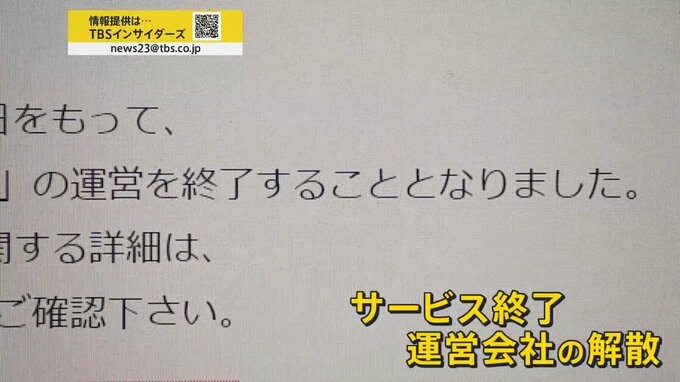 情報提供は…
TBSインサイダーズ
news23@tbs.co.jp
日をもって、
」の運営を終了することとなりました。
関する詳細は、
ご確認下さい。
サービス終了
運営会社の解散